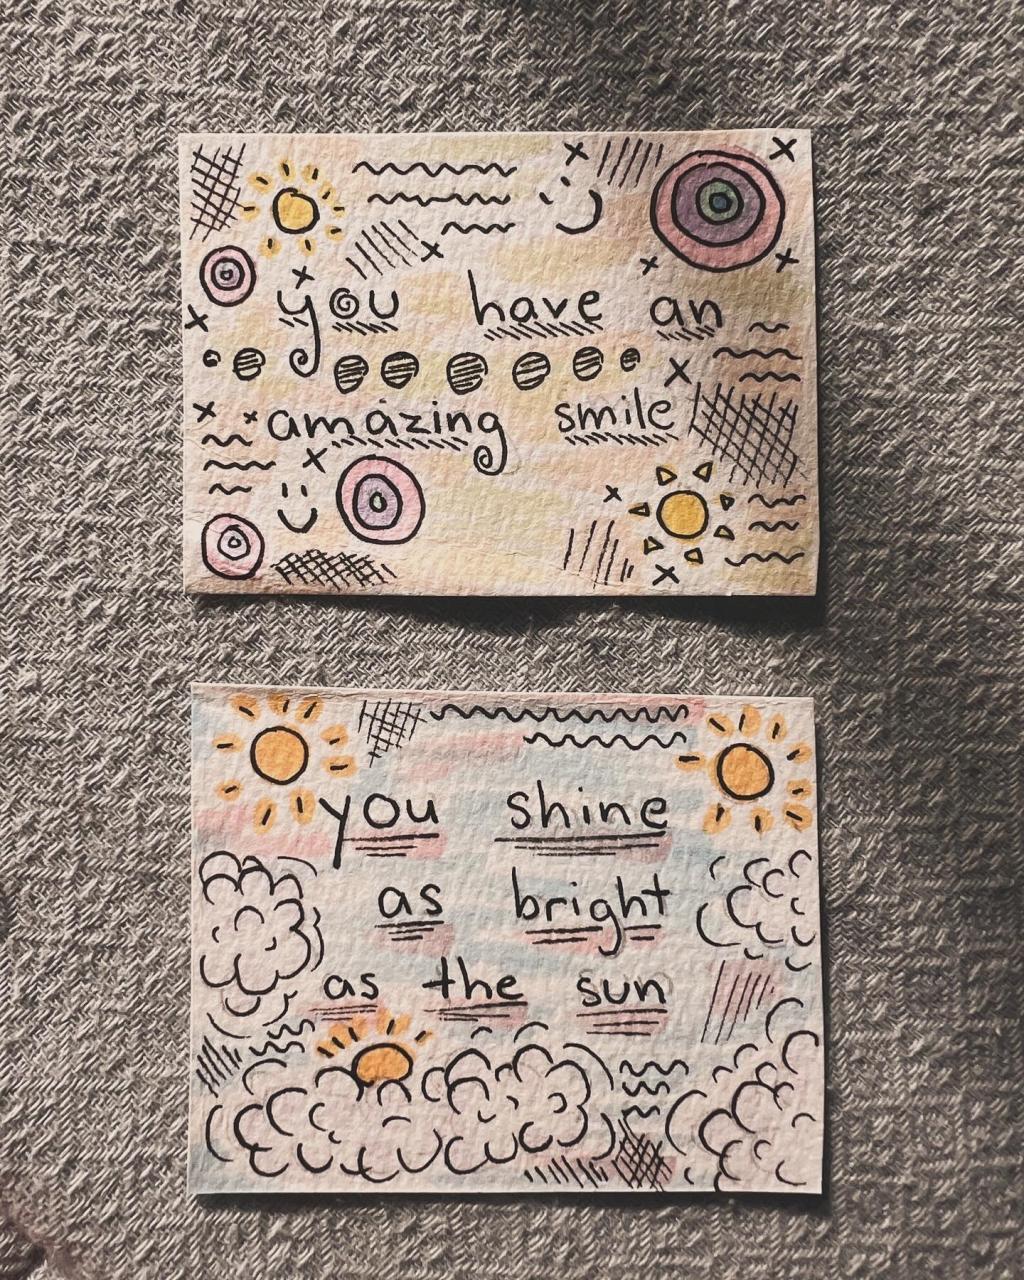 you have an
amazing smile
you shine
as bright
as the sun